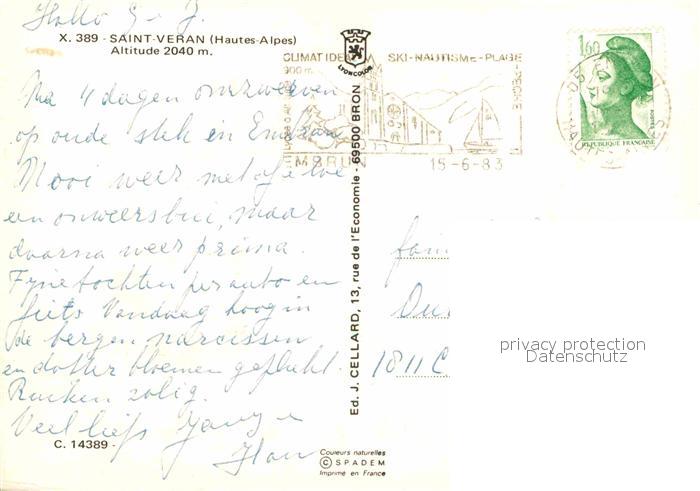 Hallo G - J.
X. 389 - SAINT-VERAN (Hautes-Alpes)
Altitude 2040 m.
Na 4 dagen omzwerven
op oude stek in Embrun
Mooi weer met af en toe
een onweersbui, maar
daarna weer prima.
Fijne tochten per auto en
fiets Vandaag hoog in
de bergen narcissen
en dotterbloemen geplukt.
Ruiken zalig.
Veel liefs
Han
C. 14389 -
LYONCOLOR
Ed. J. CELLARD, 13, rue de l'Economie - 69500 BRON
Couleurs naturelles
© SPADEM
Imprimé en France
CLIMAT IDEAL SKI-NAUTISME-PLAGE
900 m
PECHE
EMBRUN
15-6-83
1,60
REPUBLIQUE FRANÇAISE
fam
1811 C
privacy protection
Datenschutz